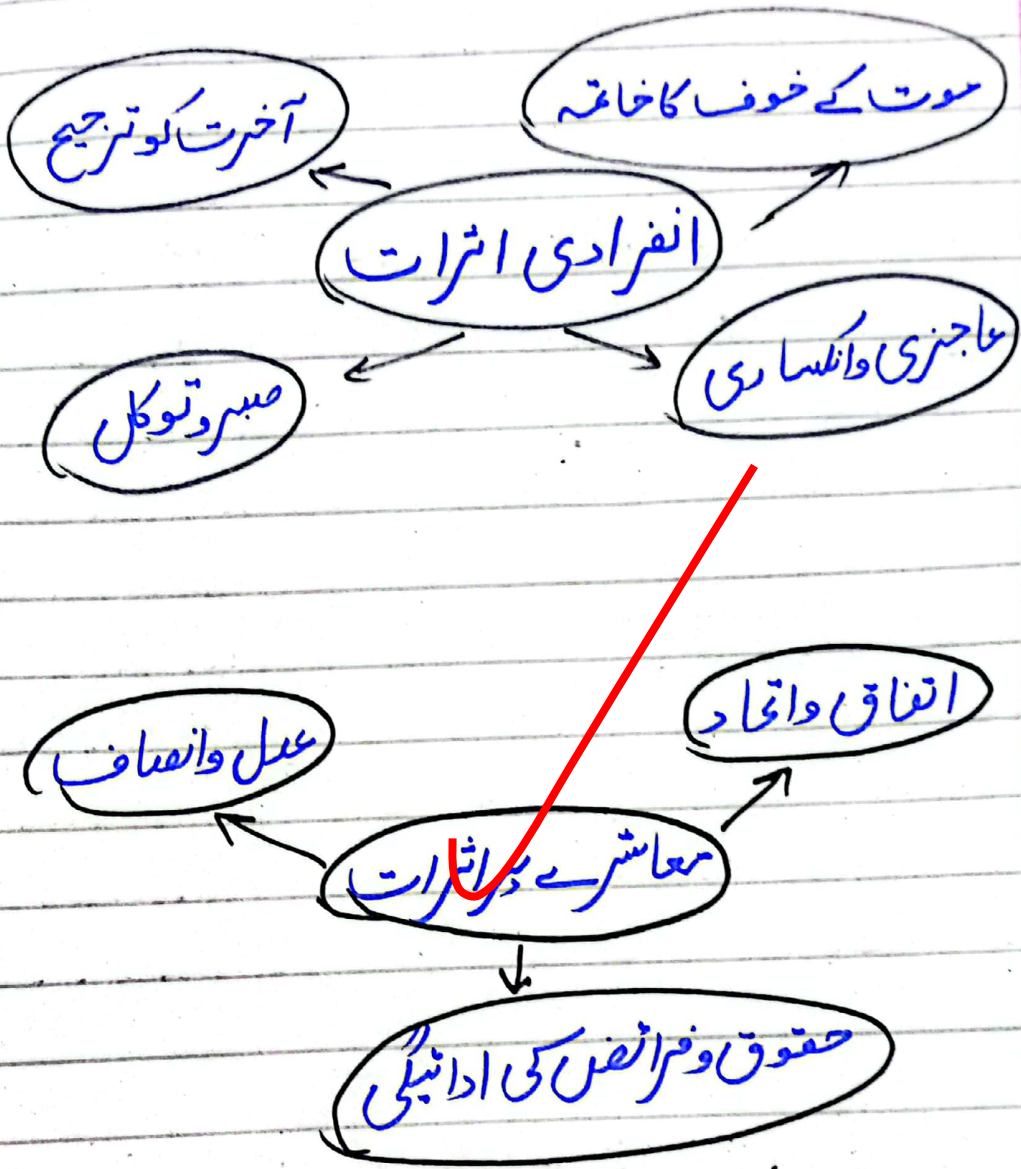 موت کے خوف کا خاتمہ
آخرت کو ترجیح
انفرادی اثرات
عاجزی وانکساری
صبر و توکل
اتفاق واتحاد
عدل وانصاف
معاشرے پر اثرات
حقوق و فرائض کی ادائیگی